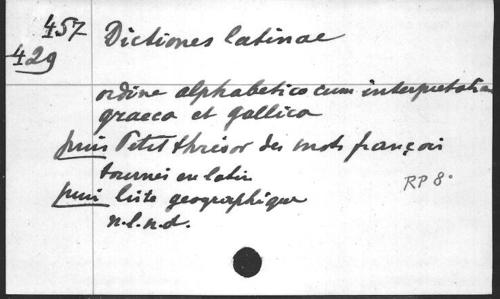 457
429
Dictiones latinae
ordine alphabetico cum interpretatione
graeca et gallica
puis Petit thresor des mots françois
tournés en latin
puis liste geographique
n.l.n.d.
RP 8°